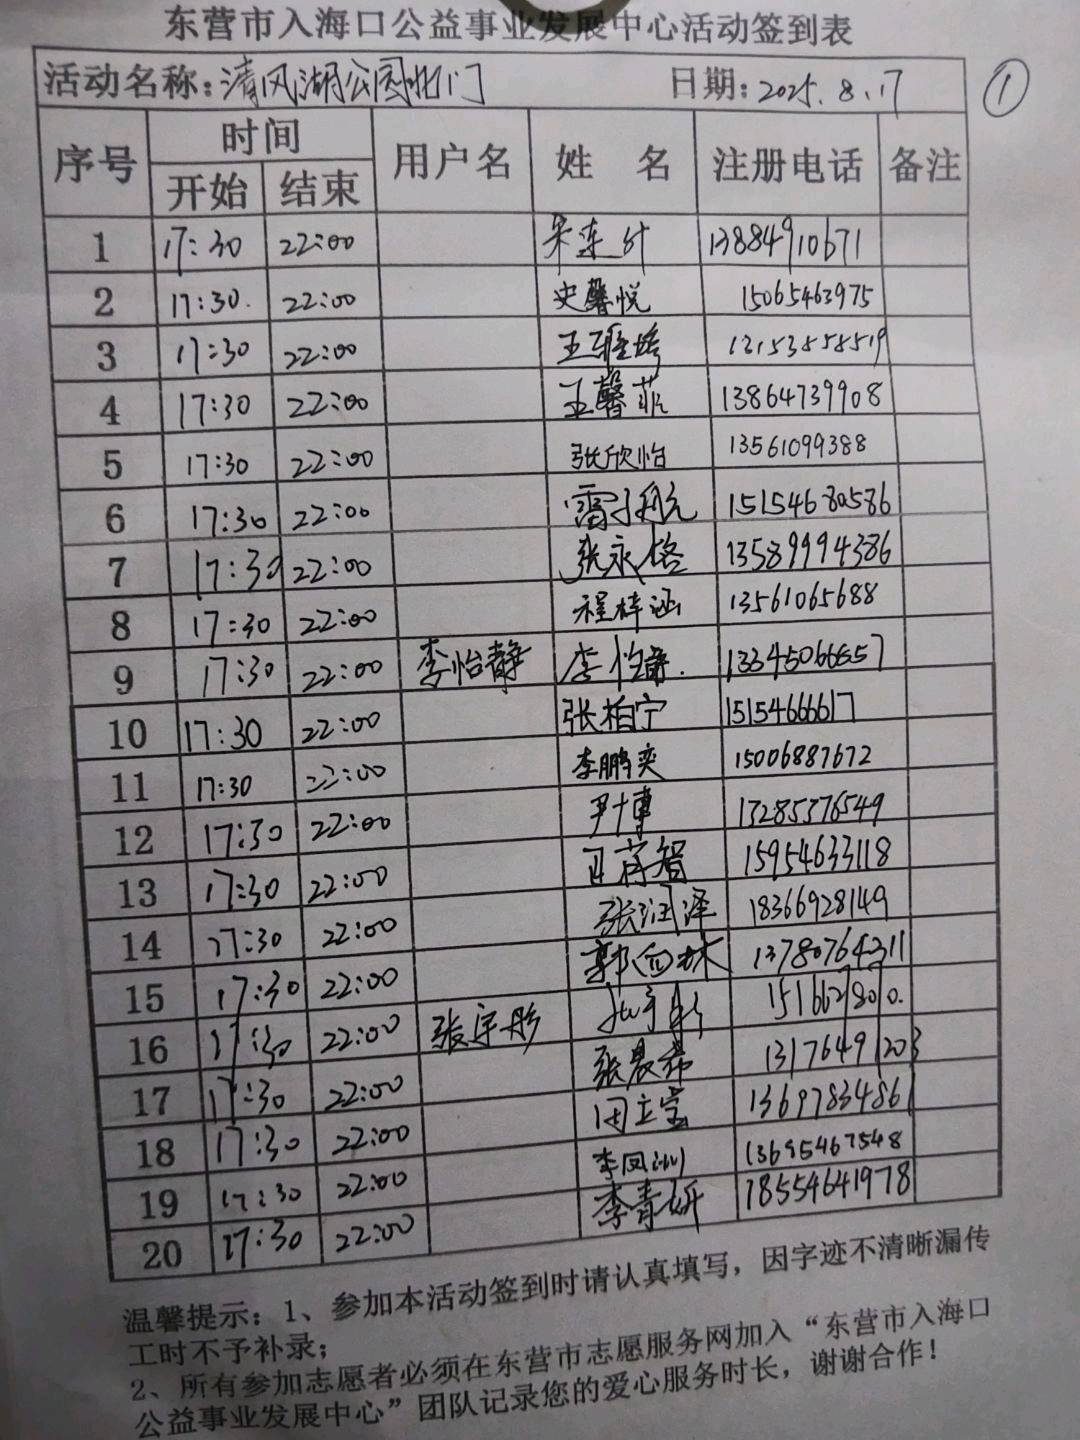 东营市入海口公益事业发展中心活动签到表
活动名称:清风湖公园北门 日期:2025.8.17 ①
序号 时间 用户名 姓 名 注册电话 备注
开始 结束
1 17:30 22:00 13884910671
2 17:30. 22:00 史馨悦 15065463975
3 17:30 22:00 13153858519
4 17:30 22:00 王馨菲 13864739908
5 17:30 22:00 张欣怡 13561099388
6 17:30 22:00 雷子航 15154680586
7 17:30 22:00 张永 13589994386
8 17:30 22:00 程梓涵 13561065688
9 17:30 22:00 李怡静 李怡静. 13345066557
10 17:30 22:00 张柏宁 15154666617
11 17:30 22:00 李鹏奕 15006887672
12 17:30 22:00 尹博 13285376549
13 17:30 22:00 15954633118
14 17:30 22:00 张润泽 18366928149
15 17:30 22:00 13780764311
16 17:30 22:00 张宇彤 张宇彤
17 17:30 22:00 张晨希 13176491203
18 17:30 22:00 田立宝 13697834861
19 17:30 22:00 13695467548
20 17:30 22:00 李青妍 18554641978
温馨提示:1、参加本活动签到时请认真填写,因字迹不清晰漏传
工时不予补录;
2、所有参加志愿者必须在东营市志愿服务网加入“东营市入海口
公益事业发展中心”团队记录您的爱心服务时长,谢谢合作!